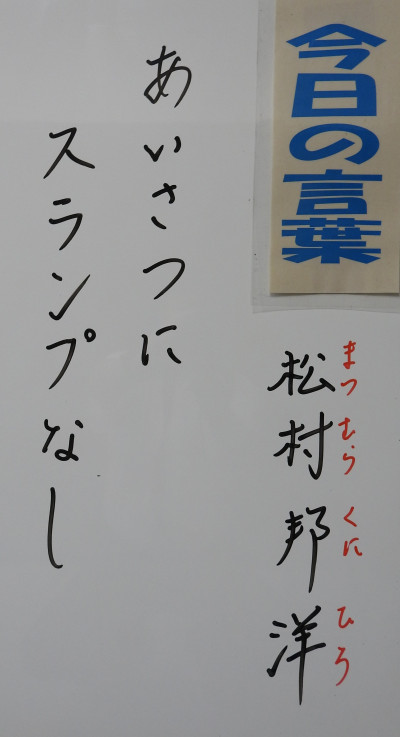 今日の言葉
まつむらくにひろ
松村邦洋
あいさつに
スランプなし